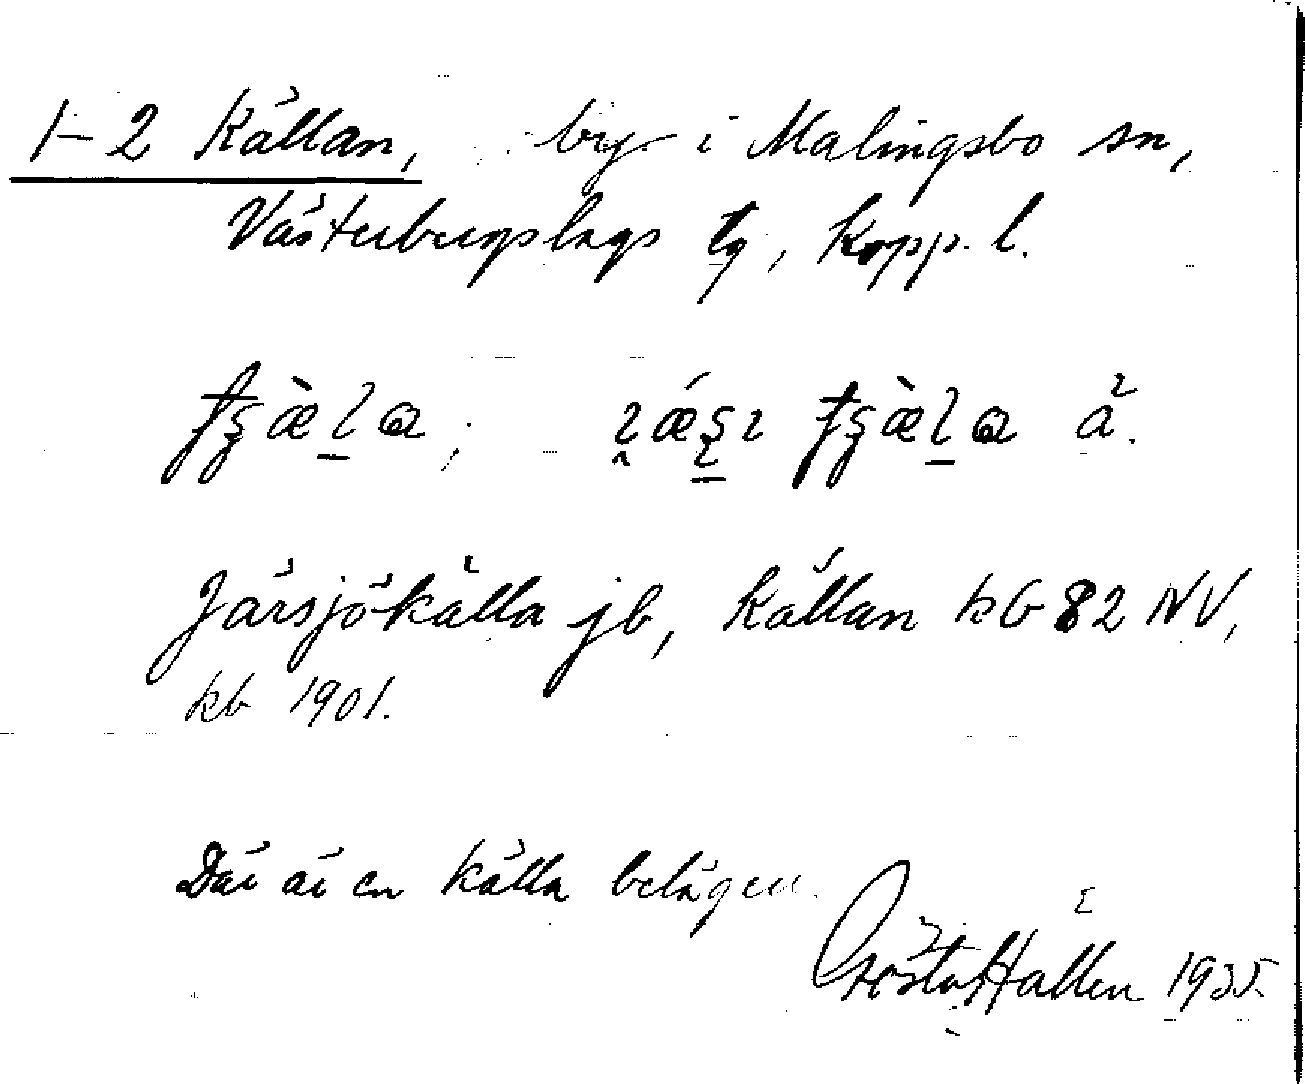 1-2 Källan, by i Malingsbo sn,
Västerbergslags tg, Kopp. l.
Järsjökälla jb, Källan kb 82 NV,
kb 1901.
Där är en källa belägen.
Gösta Hallén 1935.